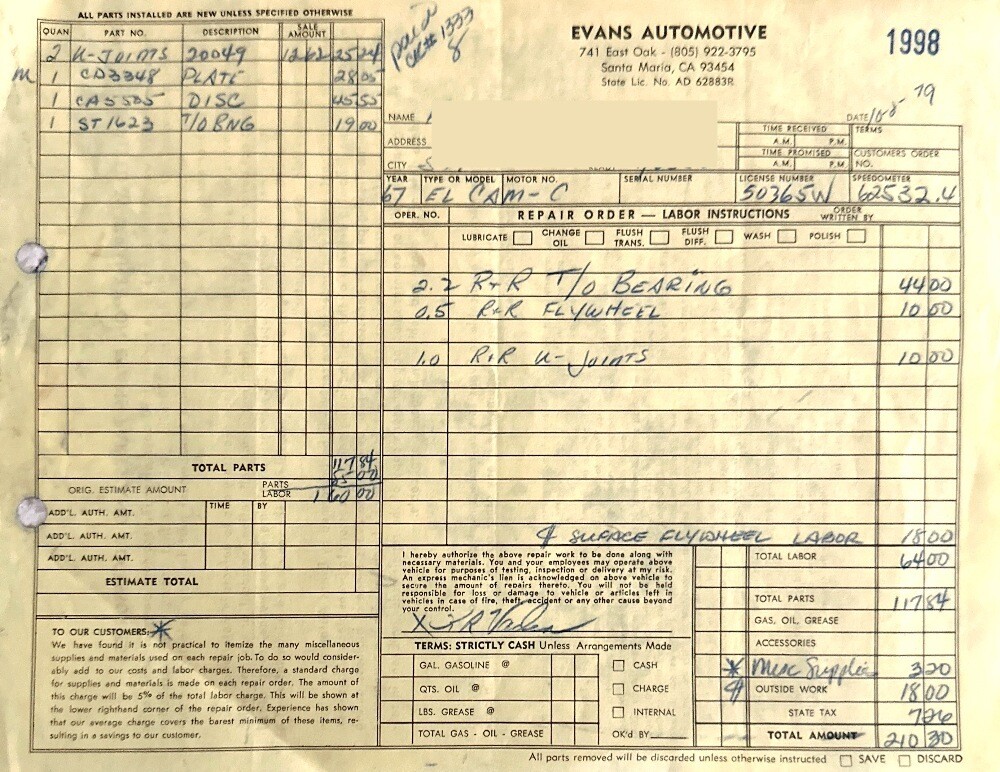 ALL PARTS INSTALLED ARE NEW UNLESS SPECIFIED OTHERWISE
QUAN. PART NO. DESCRIPTION SALE AMOUNT
2 U-JOINTS 20049 1262 25 24
M 1 CA3348 PLATE 28 05
1 CA5505 DISC 45 55
1 ST1623 T/O BNG 19 00
TOTAL PARTS 117 84
ORIG. ESTIMATE AMOUNT PARTS LABOR 1 60 00
ADD'L. AUTH. AMT. TIME BY
ADD'L. AUTH. AMT.
ADD'L. AUTH. AMT.
ESTIMATE TOTAL
TO OUR CUSTOMERS: *
We have found it is not practical to itemize the many miscellaneous
supplies and materials used on each repair job. To do so would consider-
ably add to our costs and labor charges. Therefore, a standard charge
for supplies and materials is made on each repair order. The amount of
this charge will be 5% of the total labor charge. This will be shown at
the lower righthand corner of the repair order. Experience has shown
that our average charge covers the barest minimum of these items, re-
sulting in a savings to our customer.
paid
CK# 1333
8
EVANS AUTOMOTIVE
741 East Oak - (805) 922-3795
Santa Maria, CA 93454
State Lic. No. AD 62883R
1998
NAME
DATE 10-5 79
ADDRESS
CITY S
TIME RECEIVED A.M. P.M. TERMS
TIME PROMISED A.M. P.M. CUSTOMERS ORDER NO.
YEAR TYPE OR MODEL MOTOR NO. SERIAL NUMBER LICENSE NUMBER SPEEDOMETER
67 EL CAM-C 50365W 62532.4
OPER. NO. REPAIR ORDER — LABOR INSTRUCTIONS ORDER WRITTEN BY
LUBRICATE CHANGE OIL FLUSH TRANS. FLUSH DIFF. WASH POLISH
2.2 R+R T/O BEARING 44 00
0.5 R+R FLYWHEEL 10 00
1.0 R+R U-JOINTS 10 00
SURFACE FLYWHEEL LABOR 18 00
I hereby authorize the above repair work to be done along with
necessary materials. You and your employees may operate above
vehicle for purposes of testing, inspection or delivery at my risk.
An express mechanic's lien is acknowledged on above vehicle to
secure the amount of repairs thereto. You will not be held
responsible for loss or damage to vehicle or articles left in
vehicles in case of fire, theft, accident or any other cause beyond
your control.
X
TERMS: STRICTLY CASH Unless Arrangements Made
GAL. GASOLINE @ CASH
QTS. OIL @ CHARGE
LBS. GREASE @ INTERNAL
TOTAL GAS - OIL - GREASE OK'd BY
TOTAL LABOR 64 00
TOTAL PARTS 117 84
GAS, OIL, GREASE
ACCESSORIES
* Misc Supplies 3 20
OUTSIDE WORK 18 00
STATE TAX 7 26
TOTAL AMOUNT 210 30
All parts removed will be discarded unless otherwise instructed SAVE DISCARD